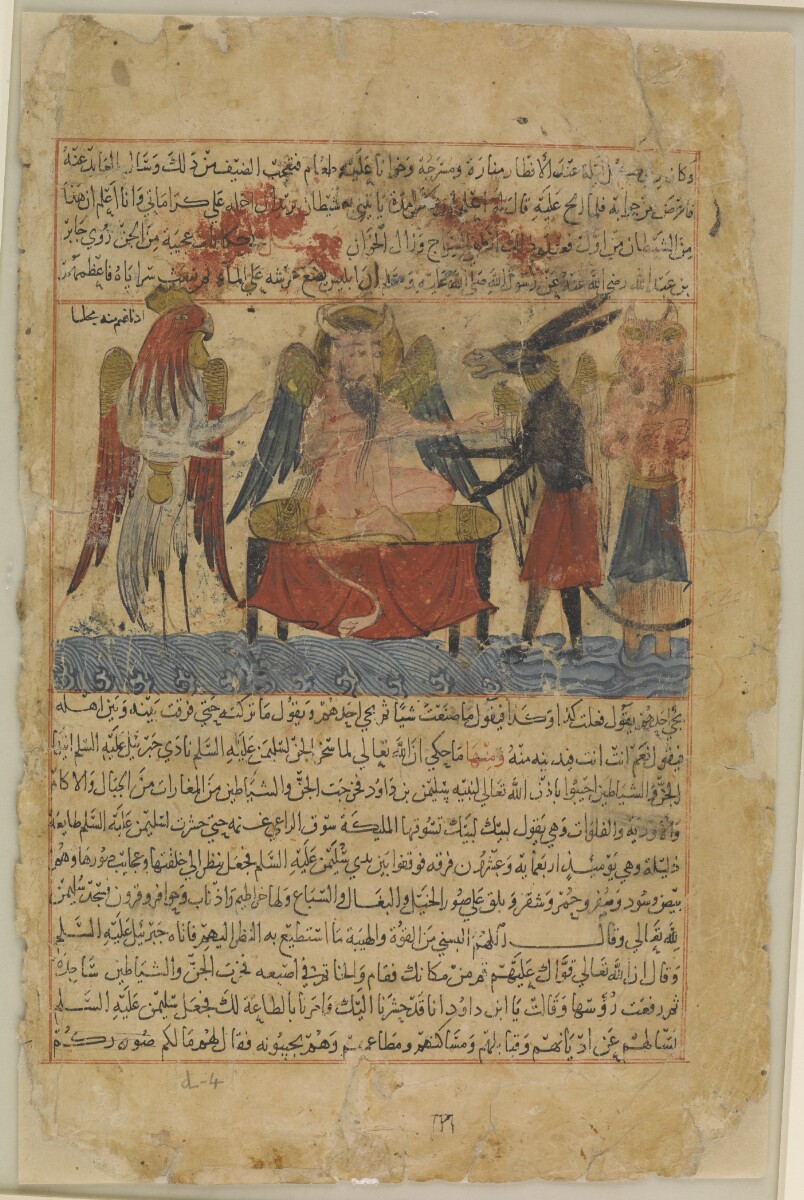 عند الافطار منارة ومسرجة وخوانا عليه طعام فتعجب الضيف من ذلك وسال العابد عنه
فاعرض عن جوابه فلما الح عليه قال يا بني شيطان يريد ان على كراماتي وانا اعلم ان هذا
من الشيطان السراج وزال الخوان حكايات عجيبة من الجن روي جابر
بن عبد الله رضي الله عنه عن رسول الله صلى الله عليه وسلم ان ابليس يضع عرشه على الماء ثم يبعث سراياه فاعظمهم
اذناهم منه مجلسا
يجي احدهم يقول فعلت كذا وكذا فيقول ما صنعت شيا ثم يجي احدهم ويقول ما تركته حتى فرقت بينه وبين اهله
فيقول نعم انت انت فيدنيه منه ومنها ما حكي ان الله تعالى لما سخر الجن لسليمن عليه السلم نادى جبرئيل عليه السلم ايها
الجن والشياطين اجيبوا باذن الله تعالى لنبيه سليمن بن داود فخرجت الجن والشياطين من المغارات من الجبال والاكام
والاودية والفلوات وهي يقول لبيك لبيك تسوقها المليكة سوق الراعي غنمه حتى حشرت لسليمن عليه السلم طايعة
ذليلة وهي يوميذ اربعماية وعشرون فرقه فوقفوا بين يدي سليمن عليه السلم فجعل ينظر الى خلقتها وعجايب صورها وهم
بيض وسود وصفر وحمر وشقر وبلق على صور الخيل والبغال والسباع ولها خراطيم واذناب وحوافر وقرون فسجد سليمن
لله تعالى وقال اللهم البسني من القوة والهيبة ما استطيع به النظر اليهم فاتاه جبرئيل عليه السلم
وقال ان الله تعالى قواك عليهم قم من مكانك فقام والخاتم في اصبعه فخرت الجن والشياطين ساجدة
ثم رفعت رؤسها وقالت يا ابن داود انا قد حشرنا اليك وامرنا بالطاعة لك فجعل سليمن عليه السلم
يسالهم عن اديانهم وقبايلهم ومساكنهم ومطاعمهم وهم يجيبونه فقال لهم ما لكم صوركم
d-4